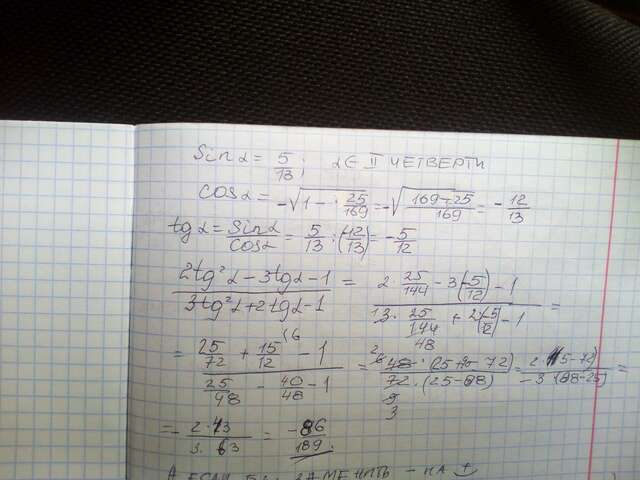 Sin α = 5/13 ; α ∈ II ЧЕТВЕРТИ
cos α = -√(1 - 25/169) = -√((169-25)/169) = -12/13
tg α = Sin α/Cos α = 5/13 : (-12/13) = -5/12
(2tg²α - 3tgα - 1)/(3tg²α + 2tgα - 1) = (2 · 25/144 - 3(-5/12) - 1)/(3 · 25/144 + 2(-5/12) - 1) =
= (25/72 + 15/12 - 1)/(25/48 - 40/48 - 1) = 48 · (25 + 72)/72 · (25 - 88) = 2 =
= - 2·43/3·63 = -86/189
А ЕСЛИ ЗАМЕНИТЬ - НА +